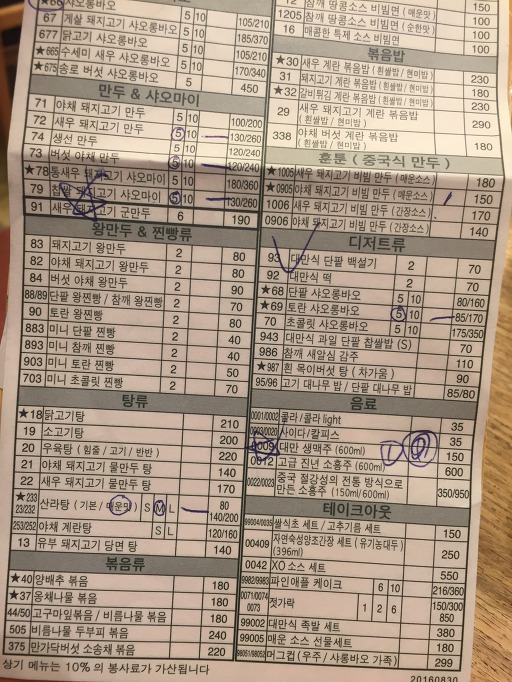 ★66 샤오롱바오
67 게살 돼지고기 샤오롱바오 5 10 105/210
677 닭고기 샤오롱바오 5 10 185/370
★665 수세미 새우 샤오롱바오 5 10 170/340
★675 송로 버섯 샤오롱바오 5 450
만두 & 샤오마이
71 야채 돼지고기 만두 5 10 100/200
72 새우 돼지고기 만두 5 10 130/260
74 생선 만두 5 10 120/240
73 버섯 야채 만두 5 10 120/240
★78 통새우 돼지고기 샤오마이 5 10 180/360
79 찹쌀 돼지고기 샤오마이 5 10 130/260
91 새우 돼지고기 군만두 6 190
왕만두 & 찐빵류
83 돼지고기 왕만두 2 80
82 야채 돼지고기 왕만두 2 80
84 버섯 야채 왕만두 2 80
88/89 단팥 왕찐빵 / 참깨 왕찐빵 2 70
90 토란 왕찐빵 2 80
883 미니 단팥 찐빵 2 40
893 미니 참깨 찐빵 2 40
903 미니 토란 찐빵 2 50
703 미니 초콜릿 찐빵 2 70
탕류
★18 닭고기탕 210
19 소고기탕 200
20 우육탕 ( 힘줄 / 고기 / 반반 ) 220
21 야채 돼지고기 물만두 탕 140
22 새우 돼지고기 물만두 탕 170
★233 23/232 산라탕 ( 기본 / 매운맛 ) S M L 80 140/200
253/252 야채 계란탕 S L 120/160
13 유부 돼지고기 당면 탕 140
볶음류
★40 양배추 볶음 180
★37 옹채나물 볶음 180
44/50 고구마잎볶음 / 비름나물 볶음 180
505 비름나물 두부피 볶음 240
375 만가닥버섯 소송채 볶음 220
상기 메뉴는 10% 의 봉사료가 가산됩니다
12 참깨 땅콩소스 비빔면 ( 매운맛 ) 150
1205 참깨 땅콩소스 비빔면 ( 순한맛 ) 100
16 매콤한 특제 소스 비빔면 100
볶음밥
★30 새우 계란 볶음밥 ( 흰쌀밥 / 현미밥 ) 230
31 돼지고기 계란 볶음밥 ( 흰쌀밥 / 현미밥 ) 180
★32 갈비튀김 계란 볶음밥 ( 흰쌀밥 / 현미밥 ) 230
29 새우 돼지고기 계란 볶음밥 ( 흰쌀밥 / 현미밥 ) 290
338 야채 버섯 계란 볶음밥 ( 흰쌀밥 / 현미밥 ) 180
훈툰 ( 중국식 만두 )
★1005 새우 돼지고기 비빔 만두 ( 매운소스 ) 180
★0905 야채 돼지고기 비빔 만두 ( 매운소스 ) 150
1006 새우 돼지고기 비빔 만두 ( 간장소스 ) 170
0906 야채 돼지고기 비빔 만두 ( 간장소스 ) 140
디저트류
93 대만식 단팥 백설기 2 70
92 대만식 떡 2 70
★68 단팥 샤오롱바오 5 10 80/160
★69 토란 샤오롱바오 5 10 85/170
70 초콜릿 샤오롱바오 5 10 175/350
943 대만식 과일 단팥 찹쌀밥 (S) 70
986 참깨 새알심 감주 110
★987 흰 목이버섯 탕 ( 차가움 ) 90
95/96 고기 대나무 밥 / 단팥 대나무 밥 85/80
음료
0001/0002 콜라 / 콜라 light 35
0003/0020 사이다 / 칼피스 35
0009 대만 생맥주 (600ml) ① ② 150
0012 고급 진년 소흥주 (600ml) 600
0022/0023 중국 절강성의 전통 방식으로 만든 소흥주 (150ml/600ml) 350/950
테이크아웃
99004/0035 쌀식초 세트 / 고추기름 세트 150
00409 자연숙성양조간장 세트 ( 유기농대두 ) (396ml) 250
0042 XO 소스 세트 550
9982/0983 파인애플 케이크 6 10 216/360
0071/0074 0073 젓가락 1 2 6 150/300 850
99002 대만식 족발 세트 380
99005 매운 소스 선물세트 180
98051/98052 머그컵 (우주 / 샤롱바오 가족) 299
20160830